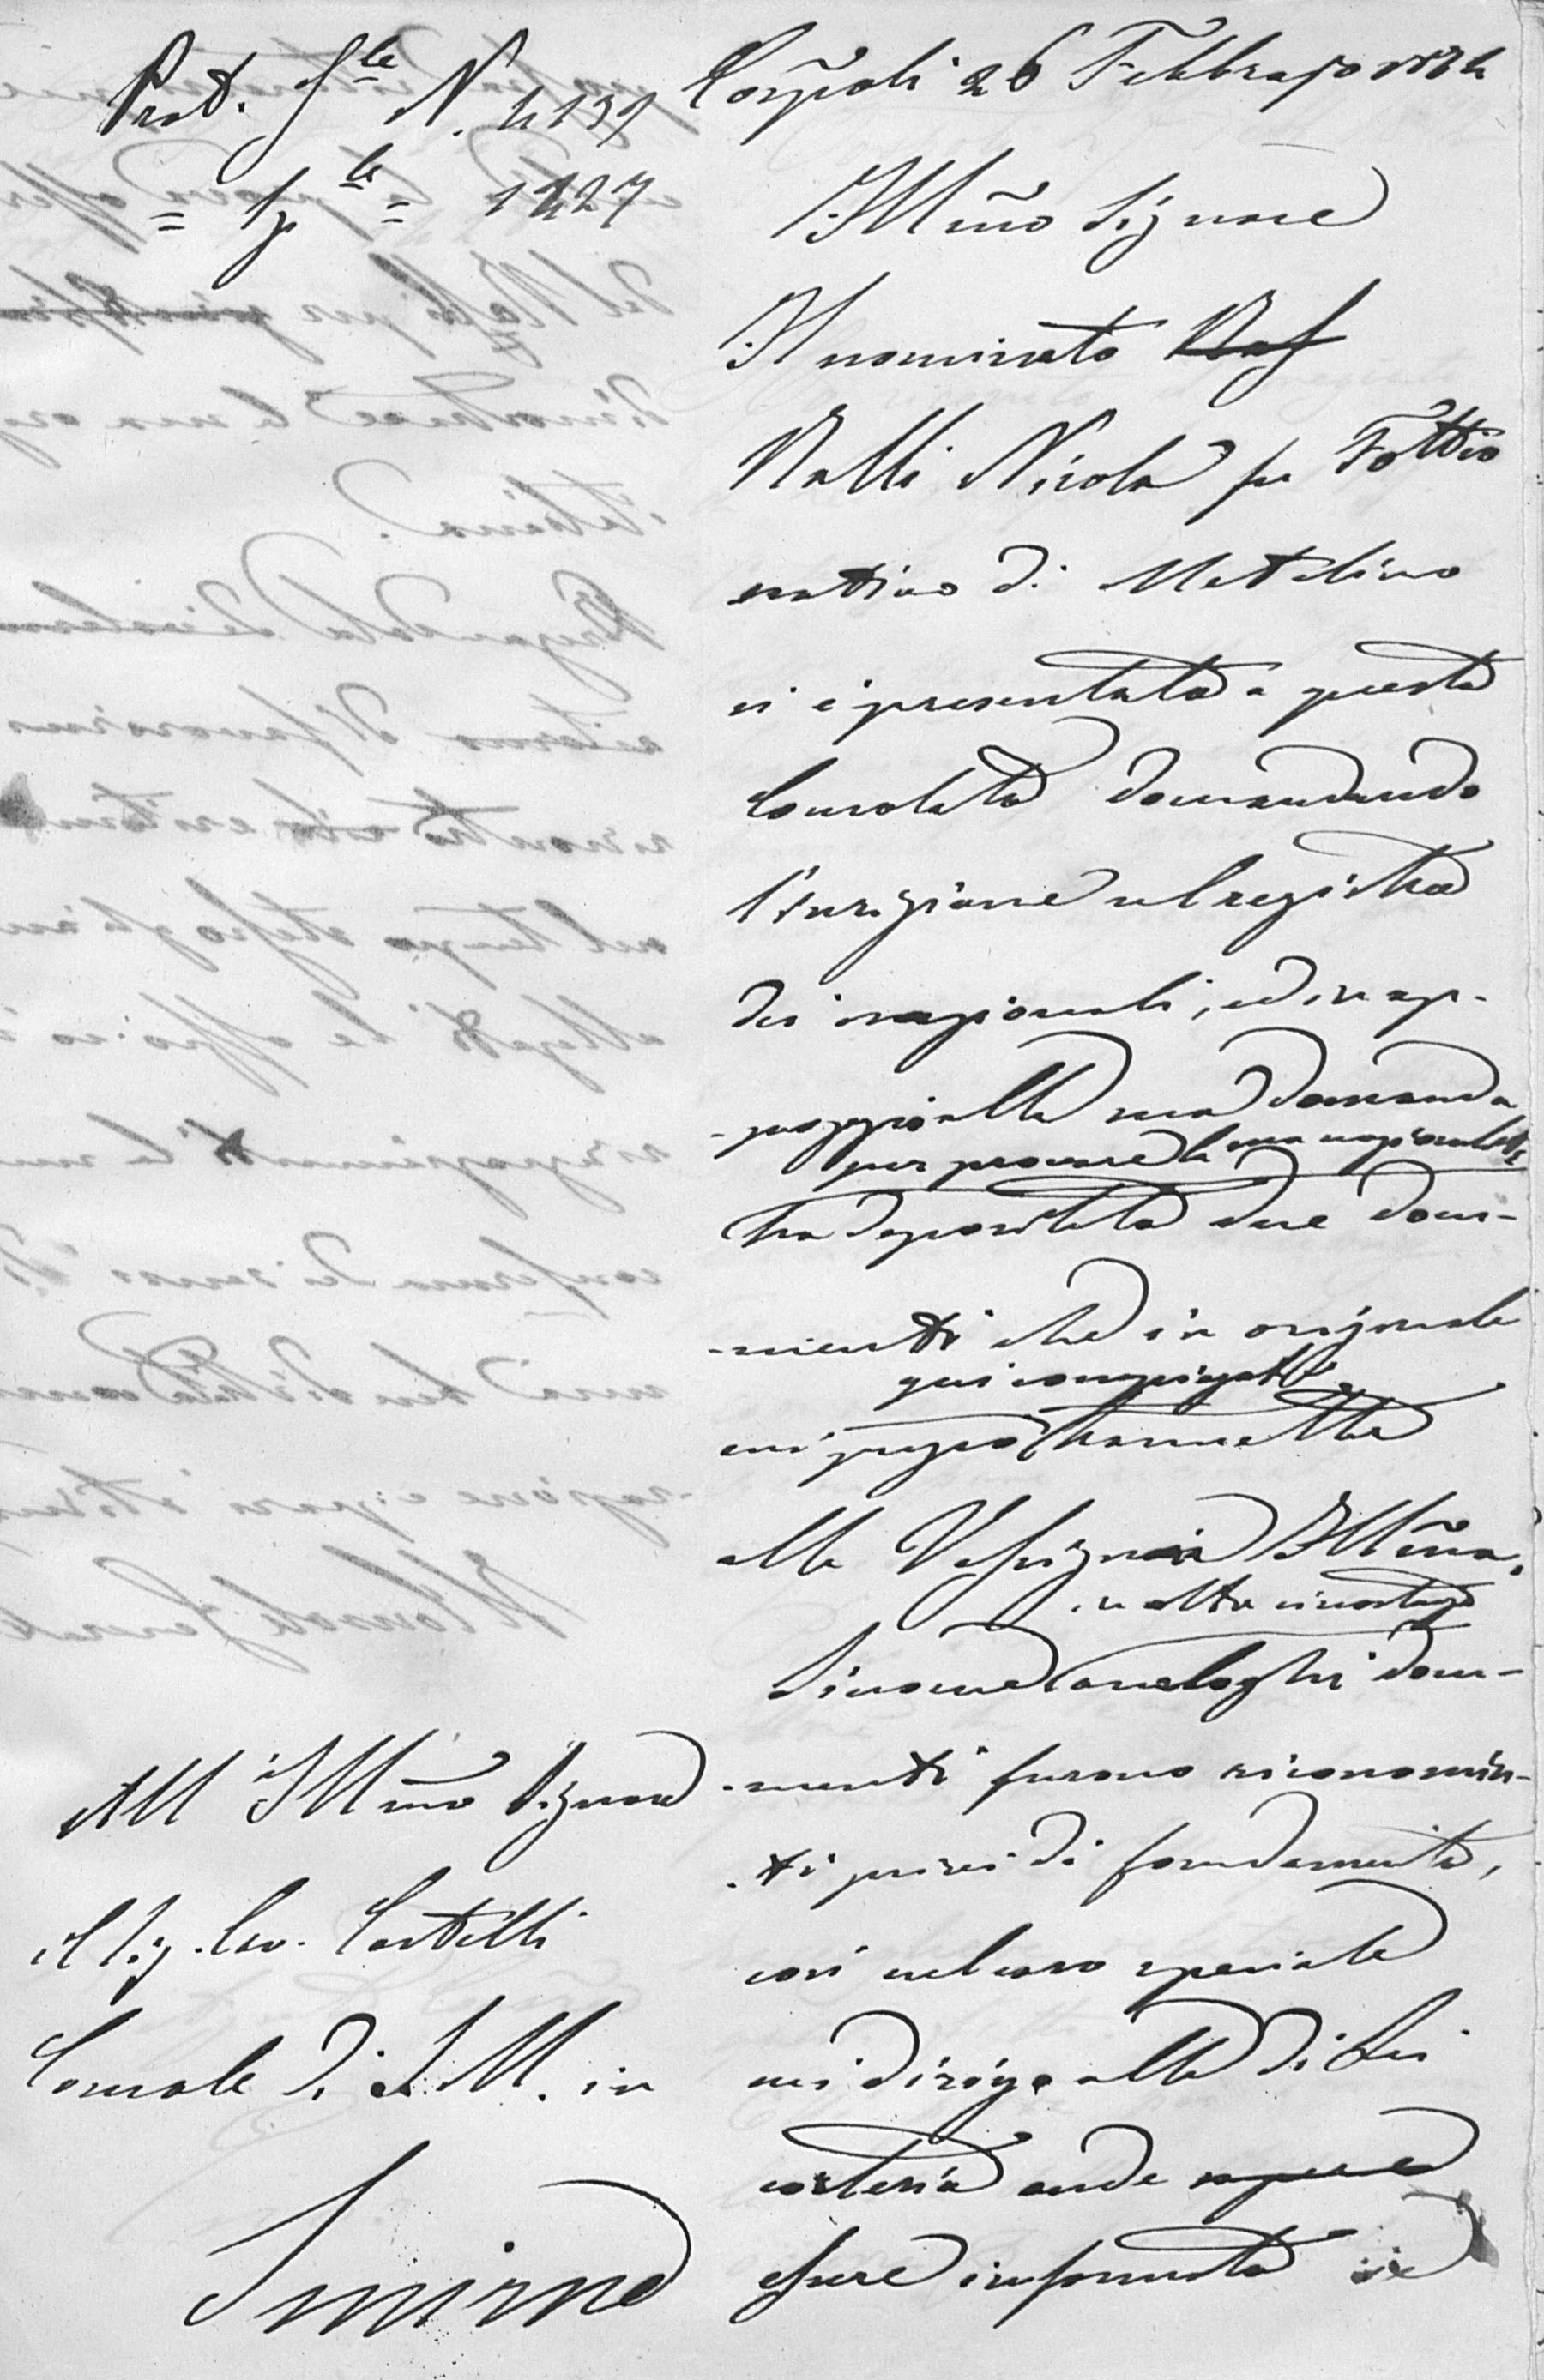 Prot. Gle N. 4139
= Sple = 1427
Costpoli 26 Febbrajo 1884
Illmo Signore
Il nominato Raf
Ralli Nicola fu Fottio
nattivo di Metelino
si è presentato a questo
Consolato domandando
l'iscrizione nel registro
dei nazionali, ed in ap-
-poggio alla sua domanda
per provare la sua nazionalità
ha depositato due docu-
-menti che in originale
qui compiegati
mi pregio trasmettere
alla V. Signoria Illma.
in altra circostanza
Siccome analoghi docu-
-menti furono riconosciu-
-ti privi di fondamento,
così nel caso speciale
mi dirigo alla di Lei
cortesia onde sapere
essere informato se
All'Illmo Signore
il Sig. Cav. Castelli
Console di S. M. in
Smirne